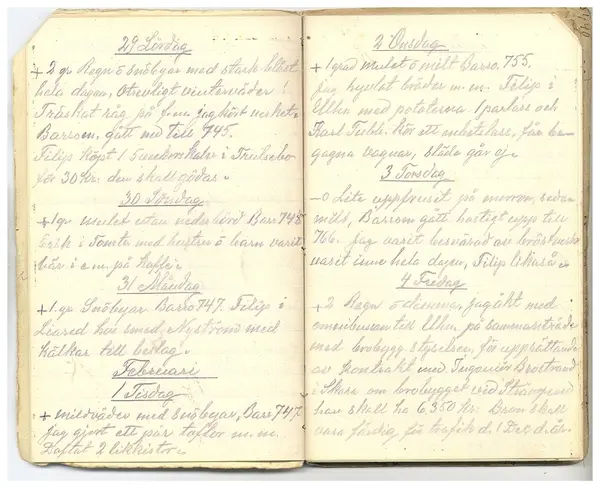 29 Lördag
+ 2 gr Regn o snöbyar med stark blåst
hela dagen, Otrevligt vinterväder!
Tröskat råg på f.m. jag kört verket.
Barrom. gått ned till 745.
Filip köpt 1 i
för 30 kr. den skall gödas.
30 Söndag
+ 1 gr mulet utan nederbörd Barr 745
i Tomta med hustru o barn varit
här i e.m. på kaffe.
31 Måndag
+ 1 gr. Snöbyar Barro 747. Filip i
Liared hos smed Nyström med
kälkar till beslag.
Februari
1 Tisdag
+ mildväder med snöbyar, Barr 747.
Jag gjort ett par tofflor m.m.
2 likkistor.
2 Onsdag
+ 1 grad mulet o milt Barro. 755.
Jag hyvlat bräder m.m. Filip i
Uhn med potatis och
Karl kör ett lass, får be-
gagna vagnar, släde går ej.
3 Torsdag
- 0 Lite uppfruset på morron, sedan
mild, Barrom gått hastigt upp till
766. Jag varit besvärad av
varit inne hela dagen, Filip
4 Fredag
+ 2 Regn o dimma, jag åkt med
omnibussen till Uhn, på sammanträde
med brobygg. styrelsen, för upprättande
av Kontrakt med Ingeniör Brostrand
i Skara om brobygget vid
han skall ha 6,350 Kr. Bron skall
vara färdig för trafik d. 1 Dec. d.år.